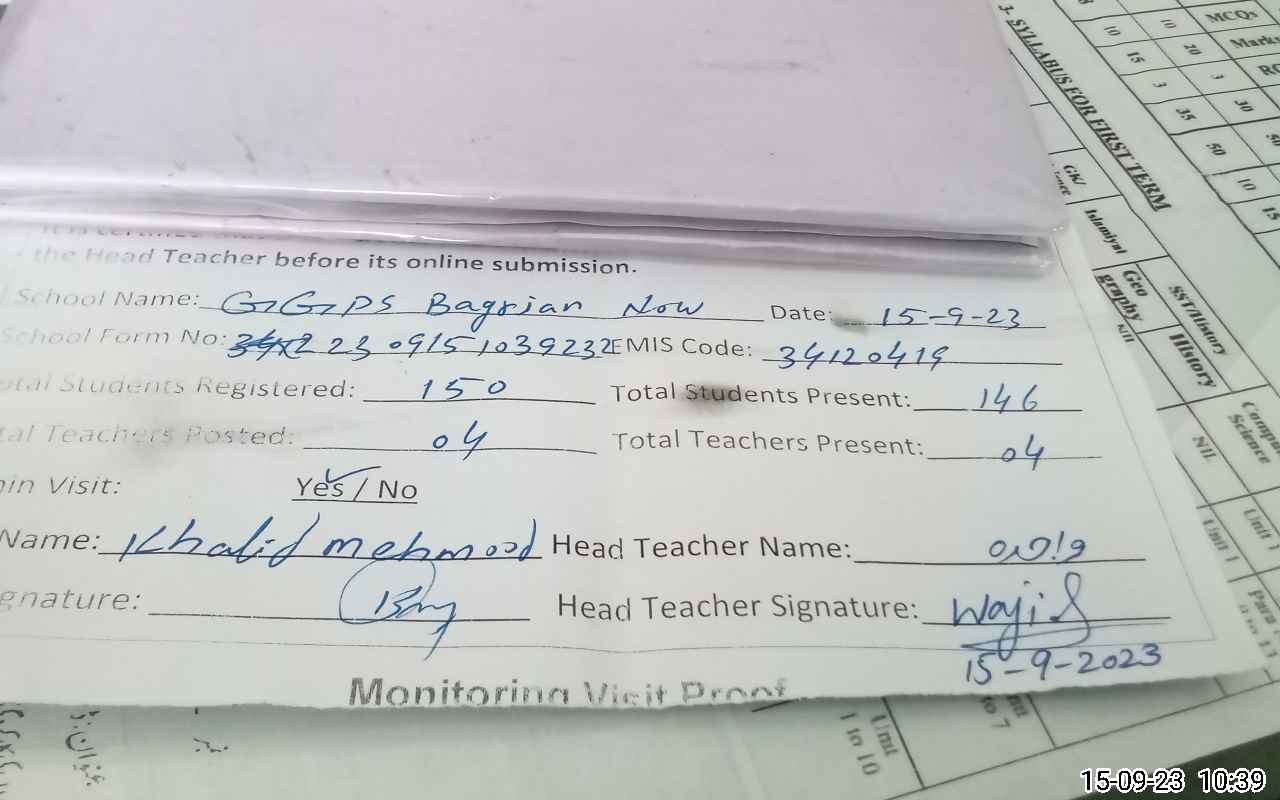 the Head Teacher before its online submission.
School Name: GGPS Bagrian Now Date: 15-9-23
School Form No: 23 09151039232 EMIS Code: 34120419
Total Students Registered: 150 Total Students Present: 146
Total Teachers Posted: 04 Total Teachers Present: 04
Visit: Yes / No
Name: Khalid mehmood Head Teacher Name:
Signature: Head Teacher Signature: Wajid
15-9-2023
Monitoring Visit Proof
3- SYLLABUS FOR FIRST TERM
MCQs
10 20
15 3 30
3
35
50
10
15
GK/
Islamiyat
Geography
Nil
SST/History
History
NIL
Unit 1
Unit 1 to 10
to 7
عنوان:
15-09-23 10:39